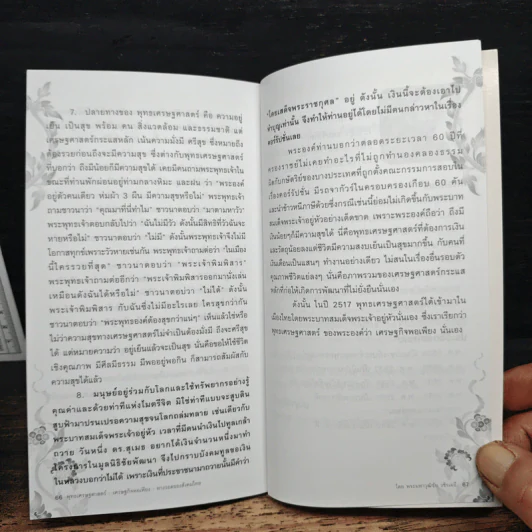 7. ปลายทางของ พุทธเศรษฐศาสตร์ คือ ความอยู่
เย็น เป็นสุข พร้อม คน สิ่งแวดล้อม และธรรมชาติ แต่
เศรษฐศาสตร์กระแสหลัก เน้นความมั่งมี ศรีสุข ซึ่งหมายถึง
ต้องรวยก่อนถึงจะมีความสุข ซึ่งต่างกับพุทธเศรษฐศาสตร์
ที่บอกว่า ถึงมีน้อยก็มีความสุขได้ เคยมีคนถามพระพุทธเจ้าใน
ขณะที่ท่านพักผ่อนอยู่ท่ามกลางหิมะ และฝน ว่า "พระองค์
อยู่ตัวคนเดียว ห่มผ้า 3 ผืน มีความสุขหรือไม่" พระพุทธเจ้า
ถามชาวนาว่า "คุณมาที่นี่ทำไม" ชาวนาตอบว่า "มาตามหาวัว"
พระพุทธเจ้าตอบกลับไปว่า "ฉันไม่มีวัว ดังนั้นมีสิทธิที่วัวฉันจะ
หายหรือไม่" ชาวนาตอบว่า "ไม่มี" ดังนั้นพระพุทธเจ้าจึงไม่มี
โอกาสทุกข์เพราะวัวหายเช่นกัน พระพุทธเจ้าถามต่อว่า "ในเมือง
นี้ใครรวยที่สุด" ชาวนาตอบว่า "พระเจ้าพิมพิสาร"
พระพุทธเจ้าถามต่ออีกว่า "พระเจ้าพิมพิสารออกมานั่งเล่น
เหมือนดังฉันได้หรือไม่" ชาวนาตอบว่า "ไม่ได้" ดังนั้น
พระเจ้าพิมพิสาร กับฉันซึ่งไม่มีอะไรเลย ใครสุขกว่ากัน
ชาวนาตอบว่า "พระพุทธองค์ต้องสุขกว่าแน่ๆ" เห็นแล้วใช่หรือ
ไม่ว่าความสุขทางเศรษฐศาสตร์ไม่จำเป็นต้องมั่งมี ถึงจะศรีสุข
ได้ แต่หมายความว่า อยู่เย็นแล้วจะเป็นสุข นั่นคือขอให้ใช้ชีวิต
เชิงคุณภาพ มีศีลมีธรรม มีพออยู่พอกิน ก็สามารถสัมผัสกับ
ความสุขได้แล้ว
8. มนุษย์อยู่ร่วมกับโลกและใช้ทรัพยากรอย่างรู้
คุณค่าและด้วยท่าทีแห่งไมตรีจิต มิใช่ท่าทีแบบจะสูบดิน
สูบฟ้ามาปรนเปรอความสุขจนโลกถล่มทลาย เช่นเดียวกับ
พระบาทสมเด็จพระเจ้าอยู่หัว เวลาที่มีคนนำเงินไปทูลเกล้าฯ
ถวาย วันหนึ่ง ดร.สุเมธ อยากได้เงินจำนวนหนึ่งมาทำ
โครงการในมูลนิธิชัยพัฒนา จึงไปกราบบังคมทูลขอเงิน
ในหลวงบอกว่าไม่ได้ เพราะเงินที่ประชาชนมาถวายนั้นมีคำว่า
66 พุทธเศรษฐศาสตร์ : เศรษฐกิจพอเพียง
"โดยเสด็จพระราชกุศล" อยู่ ดังนั้น เงินนี้จะต้องเอาไป
ทำบุญเท่านั้น จึงทำให้ท่านอยู่ได้โดยไม่มีคนกล่าวหาในเรื่อง
คอร์รัปชั่นเลย
พระองค์ท่านบอกว่าตลอดระยะเวลา 60 ปีที่
ครองราชย์ไม่เคยทำอะไรที่ไม่ถูกทำนองคลองธรรม
ผิดกับกษัตริย์ของบางประเทศที่ถูกตั้งคณะกรรมการสอบใน
เรื่องคอร์รัปชั่น มีรถจากัวร์ในครอบครองเกือบ 60 คัน
และนำข้าวหนีภาษีด้วยซึ่งกรณีเช่นนี้ย่อมไม่เกิดขึ้นกับพระบาท
สมเด็จพระเจ้าอยู่หัวอย่างเด็ดขาด เพราะพระองค์ถือว่า ถึงมี
เงินน้อยๆก็มีความสุขได้ นี่คือพุทธเศรษฐศาสตร์ที่ต้องการเงิน
และวัตถุน้อยลงแต่ชีวิตมีความสงบเย็นเป็นสุขมากขึ้น กับคนที่
เงินเดือนเป็นแสนๆ ทำงานอย่างเดียว ไม่สนในเรื่องอื่นรอบตัว
คุณภาพชีวิตแย่ลงๆ นั่นคือภาพรวมของเศรษฐศาสตร์กระแส
หลักที่ก่อให้เกิดการพัฒนาที่ไม่ยั่งยืนนั่นเอง
ดังนั้น ในปี 2517 พุทธเศรษฐศาสตร์ได้เข้ามาใน
เมืองไทยโดยพระบาทสมเด็จพระเจ้าอยู่หัวนั่นเอง ซึ่งเราเรียกว่า
พุทธเศรษฐศาสตร์ ของพระองค์ว่า เศรษฐกิจพอเพียง นั่นเอง
โดย พระมหาวุฒิชัย วชิรเมธี 67